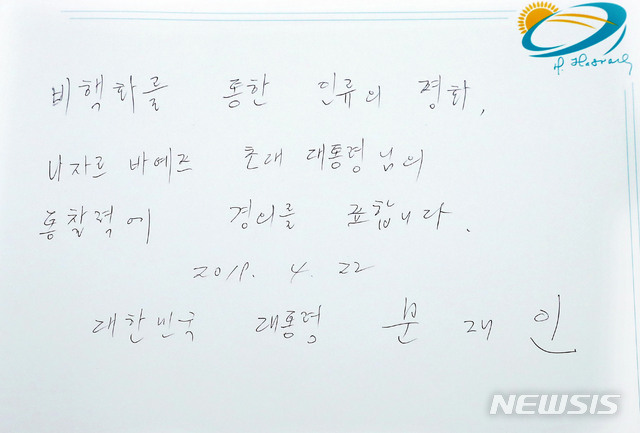 비핵화를 통한 인류의 평화,
나자르바예프 초대 대통령님의
통찰력에 경의를 표합니다.
2019. 4. 22
대한민국 대통령 문 재 인
NEWSIS